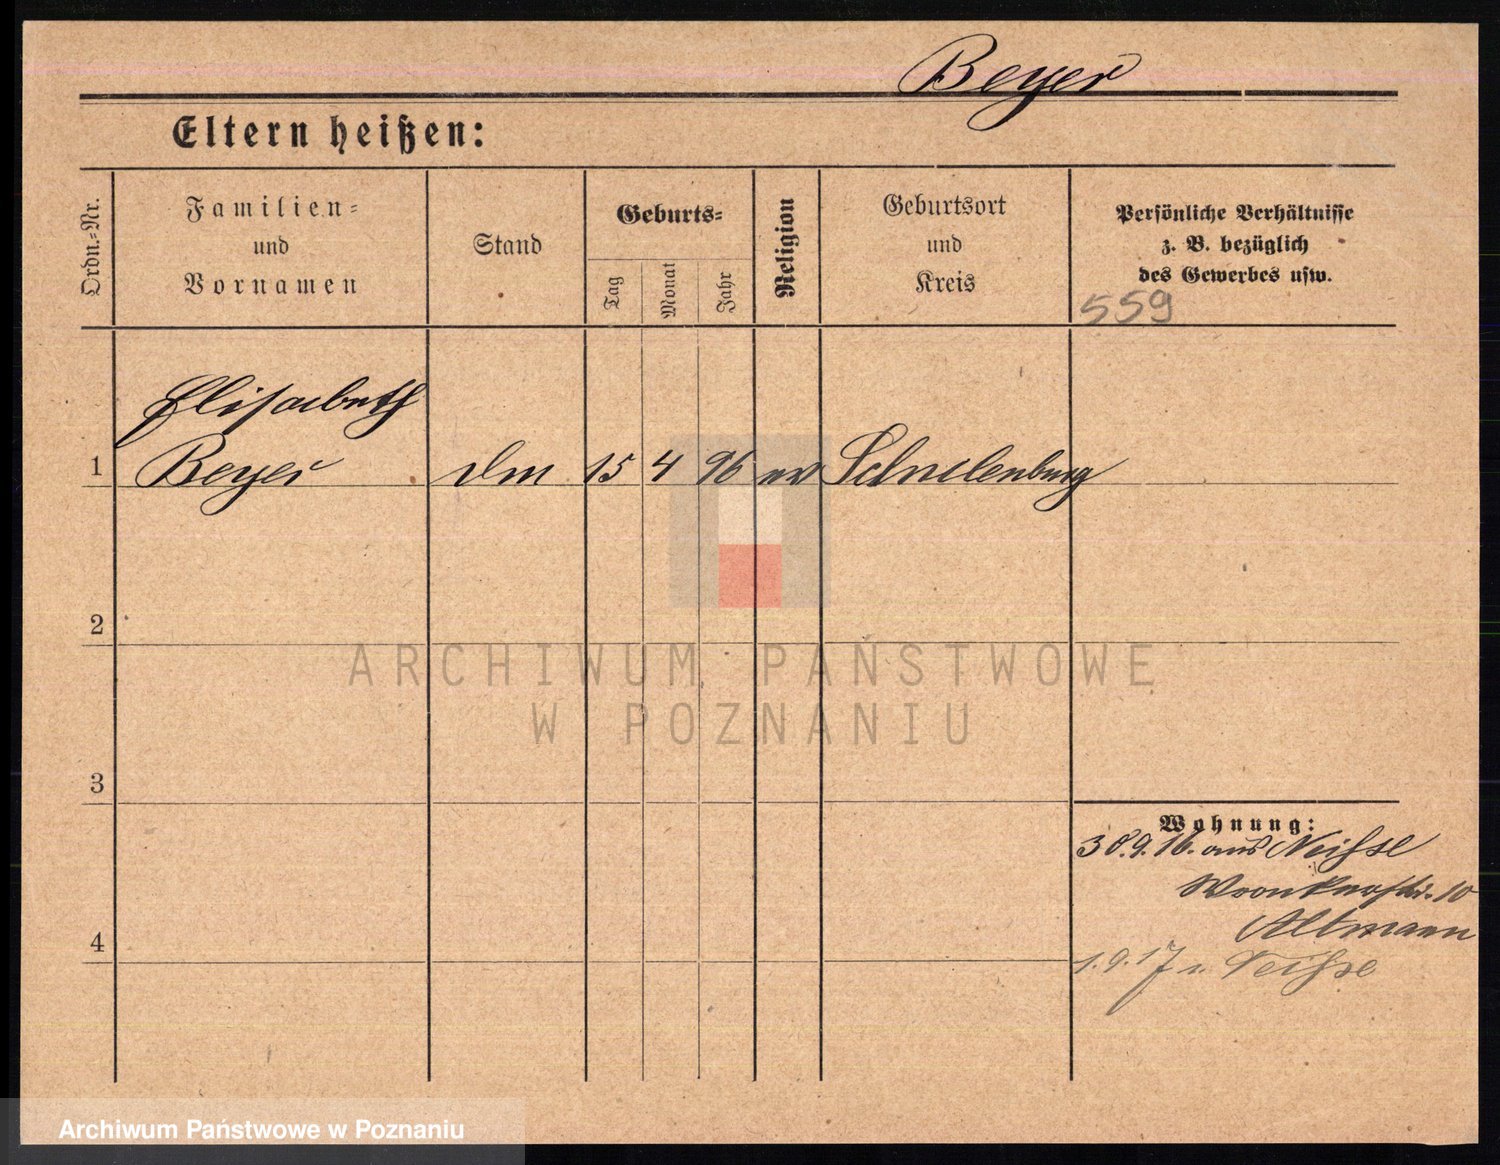 Beyer
Eltern heißen:
Ordn.-Nr.
Familien-
und
Vornamen
Stand
Geburts-
Tag
Monat
Jahr
Religion
Geburtsort
und
Kreis
Persönliche Verhältnisse
z. B. bezüglich
des Gewerbes usw.
559
Elisabeth
1 Beyer 15 4 96 ev
2
ARCHIWUM PAŃSTWOWE
W POZNANIU
3
Wohnung:
30.9.16. aus Neisse
Wronkerstr. 10
Altmann
4
1.9.17 n. Neisse
Archiwum Państwowe w Poznaniu